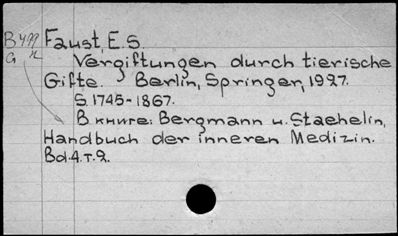 Faust, E.S.
Vergiftungen durch tierische
Gifte. Berlin, Springer, 1927.
S. 1745-1867.
В книге: Bergmann u. Staehelin,
Handbuch der inneren Medizin.
Bd.4.т.2.